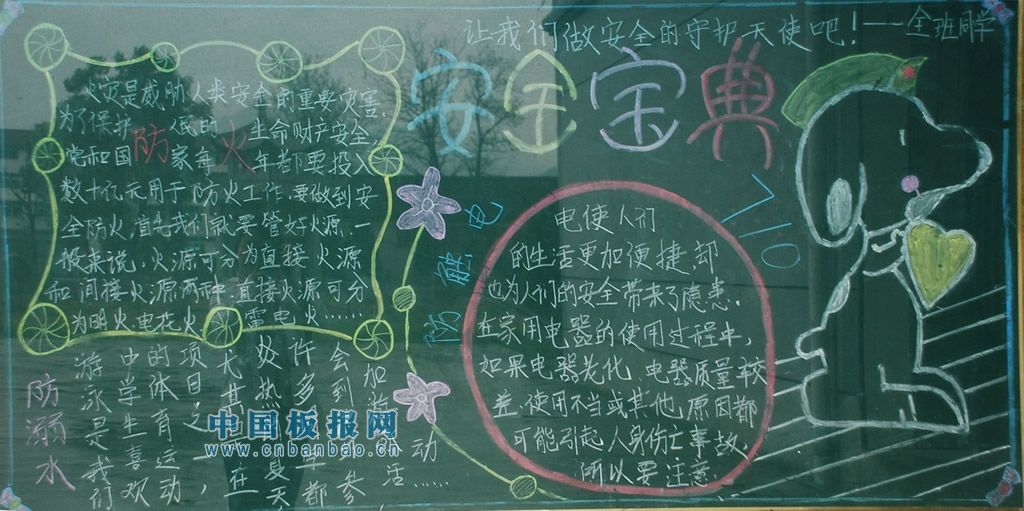 让我们做安全的守护天使吧！——全班同学
安全宝典
火灾是威胁人类安全的重要灾害.
为了保护 低的 生命财产安全
防火
党和国 家每 年都要投入
数十亿元用于防火工作.要做到安
全防火,首先我们就要管好火源.一
般来说,火源可分为直接火源
和间接火源两种.直接火源可分
为明火电花火 雷电火……
防触电
电使人们
的生活更加便捷,却
也为人们的安全带来了隐患.
在家用电器的使用过程中,
如果电器老化 电器质量较
差.使用不当或其他原因都
可能引起人身伤亡事故,
所以要注意
110
防溺水
游泳是我们
中学生喜欢
的体育运动,
项目,之
尤其
炎热 夏天
许多 都
会到 参
加 活动……
中国板报网
www.cnbanbao.cn